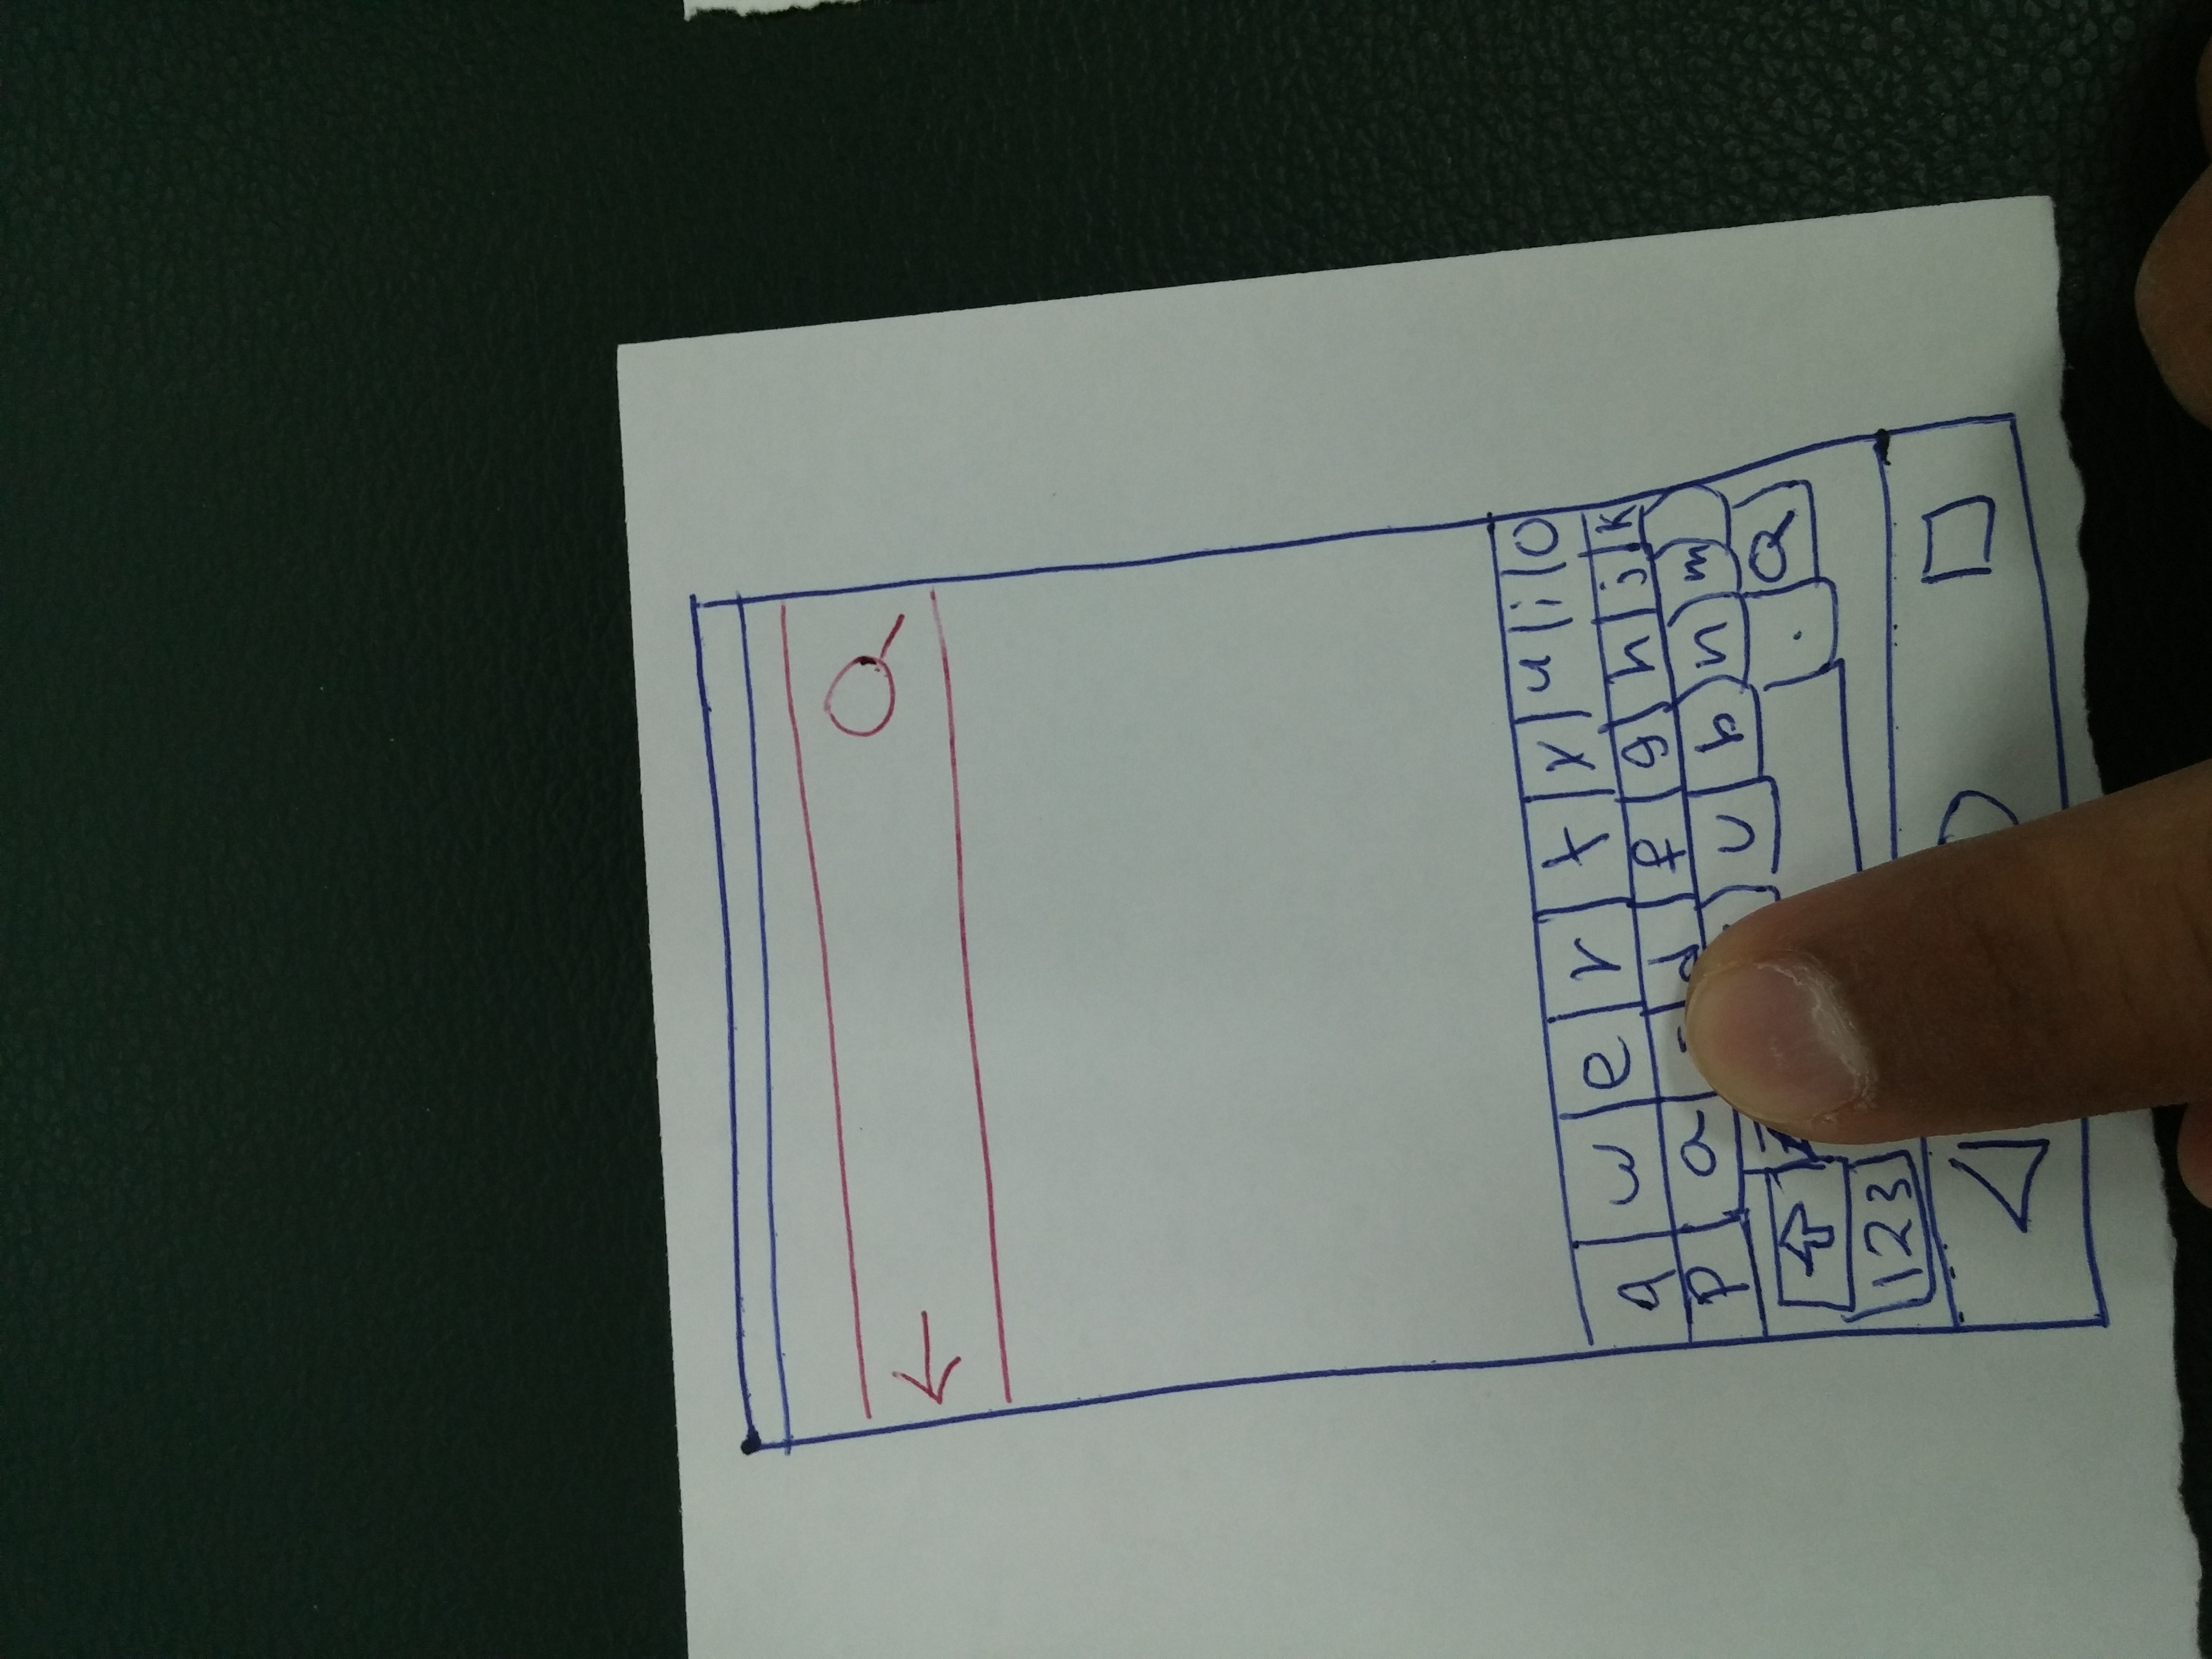 q w e r t y u i o
p a d f g h j k
v b n m
.
123